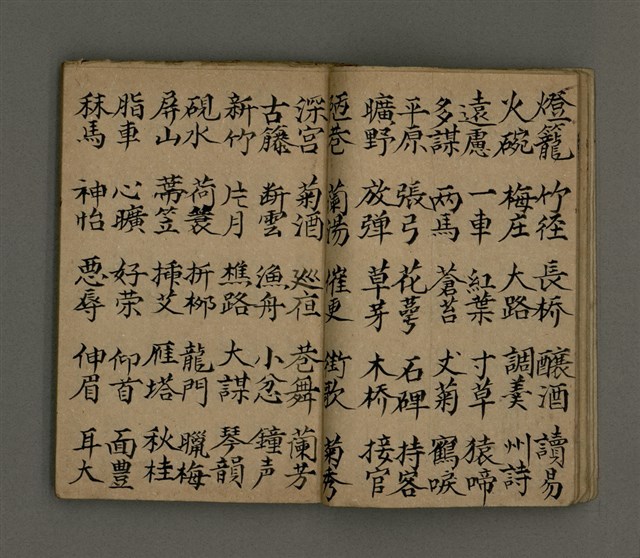 燈籠 竹径 長桥 釀酒 讀易
火碗 梅庄 大路 調羹 州詩
遠慮 一車 紅葉 寸草 猿啼
多謀 两馬 蒼苔 丈菊 鶴唳
平原 張弓 花萼 石碑 持客
曠野 放弹 草芽 木桥 接官
陋巷 蘭湯 催更 街歌 菊秀
深宫 菊酒 巡夜 巷舞 蘭芳
古籐 断雲 漁舟 小忿 鐘声
新竹 片月 樵路 大謀 琴韻
硯水 荷簑 折柳 龍門 臘梅
屏山 蒂笠 揷艾 雁塔 秋桂
脂車 心曠 好荣 仰首 面豊
秣馬 神怡 悪辱 伸眉 耳大